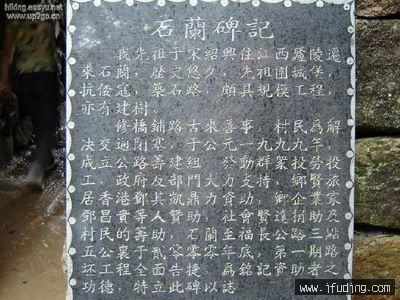 hiking.easyu.net
www.up2go.cn
石蘭碑記
我先祖于宋紹興住江西廬陵遷
來石蘭，歷史悠久，先祖圍城堡，
抗倭寇，築石路，頗具規模工程，
亦有建樹。
修橋鋪路古來善事，村民為解
决交通閉塞，于公元一九九九年，
成立公路善建組，發動群眾投勞投
工，政府及部門大力支持，鄉賢旅
居香港鄧其凱鼎力資助，鄉企業家
鄧昌貴等人賛助，社會賢達捐助及
村民的籌助，石蘭至福長公路三點
五公裏于貳零零零年底，第一期路
坯工程全面告捷，為銘記資助者之
功德，特立此碑以誌
www.ifuding.com